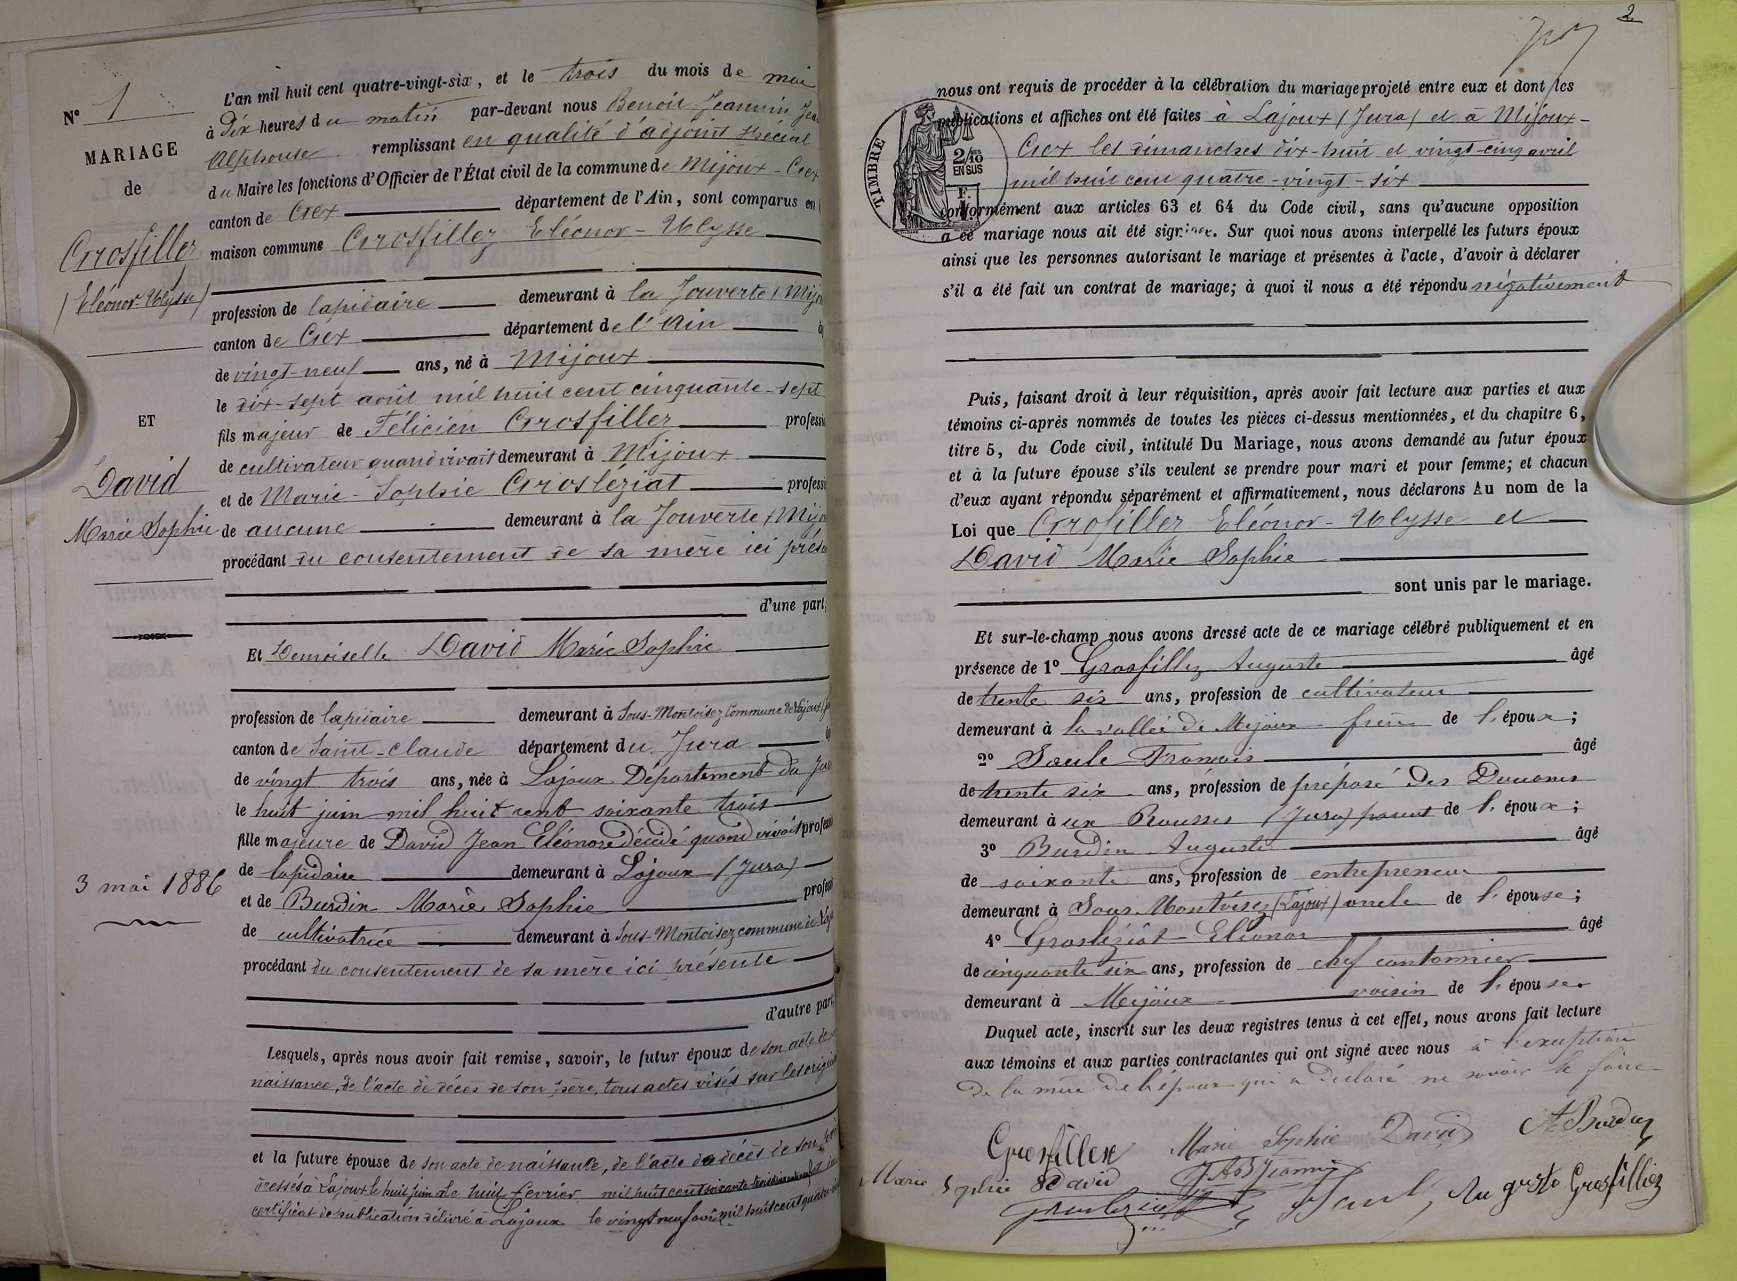 N° 1
MARIAGE
de
Grosfillez
(Eléonor Ulysse)
ET
David
Marie Sophie
3 mai 1886
L'an mil huit cent quatre-vingt-six, et le trois du mois de mai
à dix heures du matin par-devant nous Benoit-Jeannin
Alphonse remplissant en qualité d'adjoint spécial
du Maire les fonctions d'Officier de l'État civil de la commune de Mijoux-Gex
canton de Gex département de l'Ain, sont comparus en
maison commune Grosfillez Eléonor-Ulysse
profession de lapidaire demeurant à la Jouverte
canton de Gex département de l'Ain
de vingt-neuf ans, né à Mijoux
le dix-sept août mil huit cent cinquante-sept
fils majeur de Félicien Grosfillez
de cultivateur quand vivait demeurant à Mijoux
et de Marie-Sophie Grosléziat
de aucune demeurant à la Jouverte
procédant du consentement de sa mère ici
d'une part,
Et Demoiselle David Marie Sophie
profession de lapidaire demeurant à Sous-Montoisez Commune de Lajoux
canton de Saint-Claude département du Jura
de vingt trois ans, née à Lajoux Département du
le huit juin mil huit cent soixante trois
fille majeure de David Jean Eléonore décédé quand vivait
de lapidaire demeurant à Lajoux (Jura)
et de Burdin Marie Sophie
de cultivatrice demeurant à Sous-Montoisez commune de
procédant du consentement de sa mère ici présente
d'autre part,
Lesquels, après nous avoir fait remise, savoir, le futur époux de son acte de
naissance, de l'acte de décès de son père, tous actes visés sur les
et la future épouse de son acte de naissance, de l'acte de décès de son
dressés à Lajoux le huit juin et le huit février mil huit cent soixante
certificat de publication délivré à Lajoux le vingt neuf avril mil huit cent
2
TIMBRE
2/10
EN SUS
nous ont requis de procéder à la célébration du mariage projeté entre eux et dont les
publications et affiches ont été faites à Lajoux (Jura) et à Mijoux-
Gex les dimanches dix-huit et vingt-cinq avril
mil huit cent quatre-vingt-six
conformément aux articles 63 et 64 du Code civil, sans qu'aucune opposition
a ce mariage nous ait été signifiée. Sur quoi nous avons interpellé les futurs époux
ainsi que les personnes autorisant le mariage et présentes à l'acte, d'avoir à déclarer
s'il a été fait un contrat de mariage; à quoi il nous a été répondu négativement
Puis, faisant droit à leur réquisition, après avoir fait lecture aux parties et aux
témoins ci-après nommés de toutes les pièces ci-dessus mentionnées, et du chapitre 6,
titre 5, du Code civil, intitulé Du Mariage, nous avons demandé au futur époux
et à la future épouse s'ils veulent se prendre pour mari et pour femme; et chacun
d'eux ayant répondu séparément et affirmativement, nous déclarons Au nom de la
Loi que Grosfillez Eléonor-Ulysse et
David Marie Sophie
sont unis par le mariage.
Et sur-le-champ nous avons dressé acte de ce mariage célébré publiquement et en
présence de 1° Grosfillez Auguste âgé
de trente six ans, profession de cultivateur
demeurant à la vallée de Mijoux frère de l'époux;
2° Saule François âgé
de trente six ans, profession de préposé des Douanes
demeurant à aux Rousses (Jura) de l'époux;
3° Burdin Auguste âgé
de soixante ans, profession de entrepreneur
demeurant à Sous Montoisez (Lajoux) oncle de l'épouse;
4° Grosléziat Eléonor âgé
de cinquante six ans, profession de chef cantonnier
demeurant à Mijoux voisin de l'épouse.
Duquel acte, inscrit sur les deux registres tenus à cet effet, nous avons fait lecture
aux témoins et aux parties contractantes qui ont signé avec nous à l'exception
de la mère de l'époux qui a déclaré ne savoir le faire
Grosfillex Marie Sophie David A Burdin
Marie Sophie David
Auguste Grosfilliez